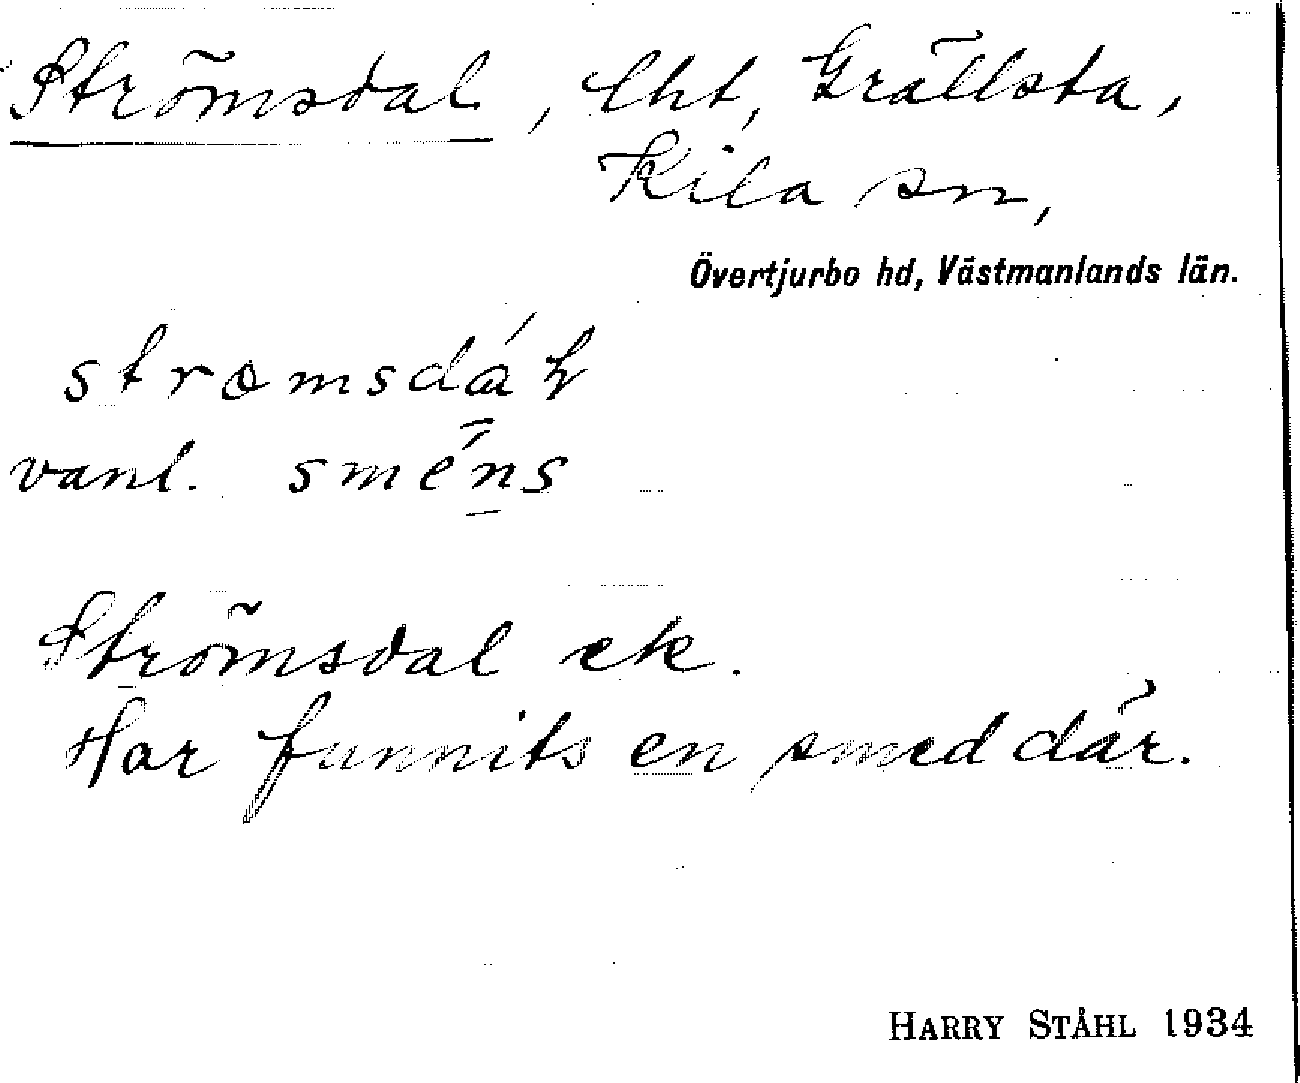 Strömsdal, lht, Grällsta,
Kila sn,
Övertjurbo hd, Västmanlands län.
vanl. sméns
Strömsdal ek.
Har funnits en smed där.
HARRY STÅHL 1934